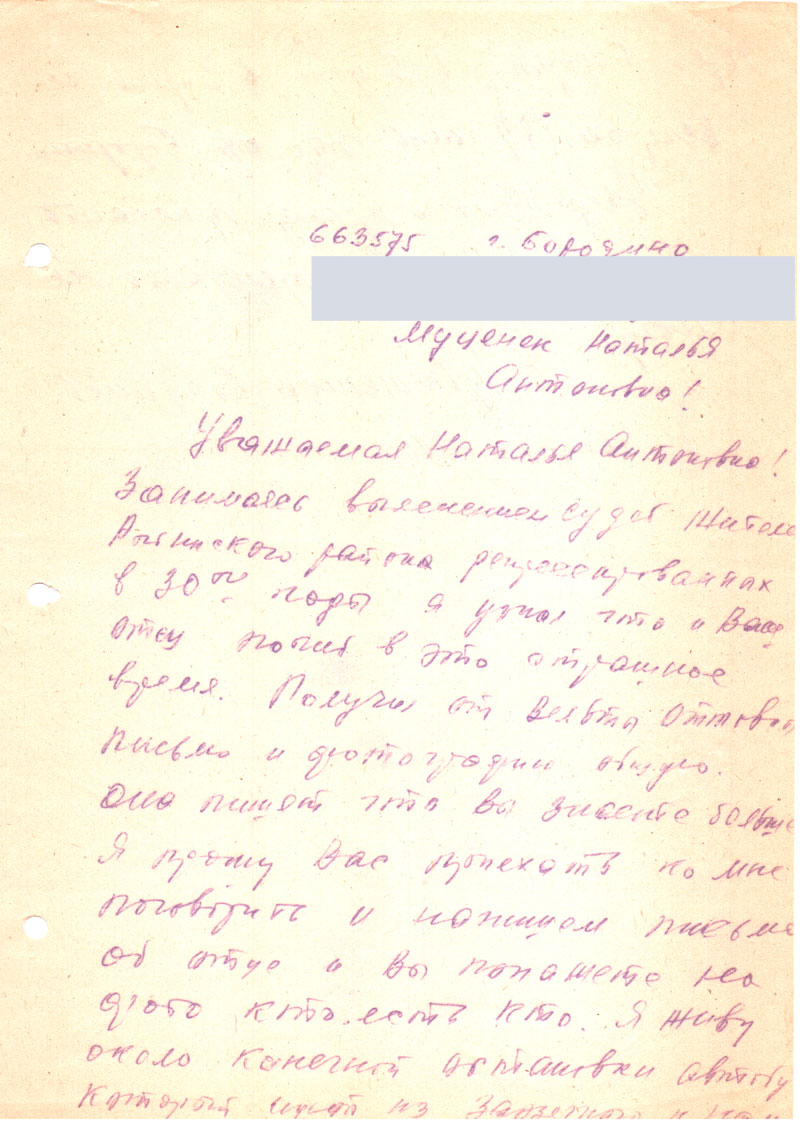 663575 г. Бородино
Муценек Наталья
Антоновна!
Уважаемая Наталья Антоновна!
Занимаясь выяснением судеб жителе
Рыбинского района репрессированных
в 30ых годы я узнал что и Ваш
отец погиб в это страшное
время. Получил от Вельты Оттовны
письмо и фотографию общую.
Она пишет что Вы знаете больше
Я прошу Вас приехать ко мне
поговорить и напишем письмо
об отце и Вы покажете на
фото кто есть кто. Я живу
около конечной остановки автобу
который идет из Заозерного к нам